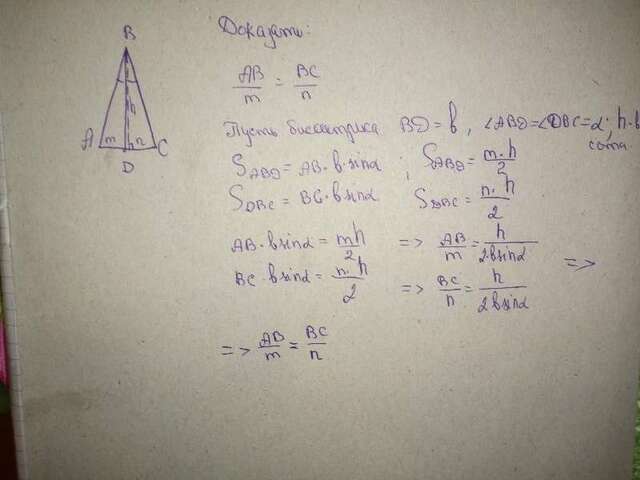 Доказать:
AB/m = BC/n
Пусть биссектриса BD = b, ∠ABD = ∠DBC = α; h - в
сота
S_ABD = AB · b · sinα ; S_ABD = m · h/2
S_DBC = BC · b sinα S_DBC = n · h/2
AB · b sinα = mh/2 => AB/m = h/2b sinα
BC · b sinα = n · h/2 => BC/n = h/2b sinα =>
=> AB/m = BC/n
B
h
A m n C
D